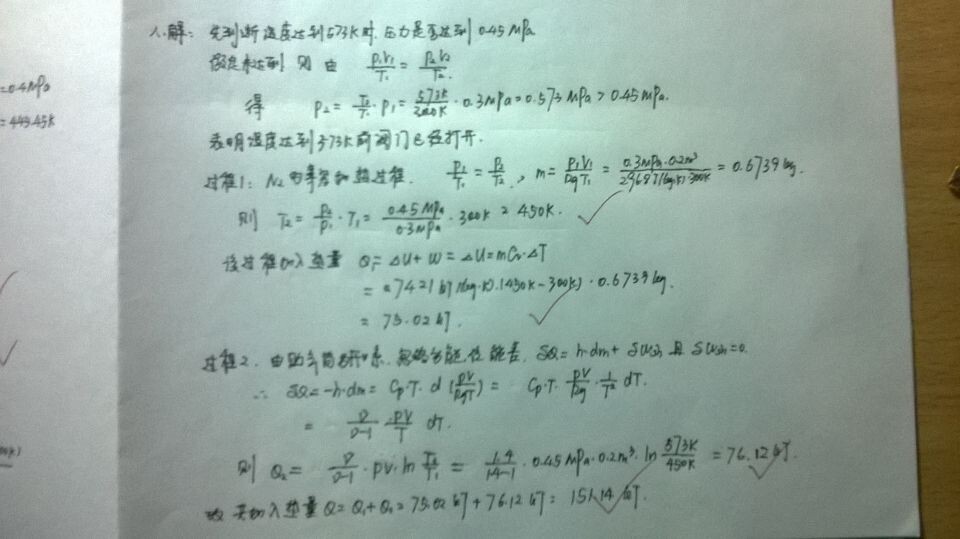 =0.4MPa
=449.45K
解: 先判断温度达到573K时, 压力是否达到0.45MPa
假定未达到 则由 p₁V₁/T₁ = p₂V₂/T₂.
得 p₂ = T₂/T₁·p₁ = 573K/300K·0.3MPa = 0.573MPa > 0.45MPa.
表明温度达到573K前阀门已经打开.
过程1: N₂为等容加热过程. p₁/T₁ = p₂/T₂, m = p₁V₁/RgT₁ = 0.3MPa·0.2m³/296.8J/(kg·K)·300K = 0.6739kg.
则 T₂ = p₂/p₁·T₁ = 0.45MPa/0.3MPa·300K = 450K.
该过程加入热量 Q₁ = ΔU+W = ΔU = mCv·ΔT
= 0.7421kJ/(kg·K)·(450K-300K)·0.6739kg.
= 75.02kJ.
过程2. 忽略动能.位能差, δQ = h·dm + 且 =0.
∴ δQ = -h·dm = Cp·T·d(pV/RgT) = Cp·T·pV/Rg·1/T² dT.
= γ/γ-1·pV/T dT.
则 Q₂ = γ/γ-1·pV·ln T₂/T₁ = 1.4/1.4-1·0.45MPa·0.2m³·ln 573K/450K = 76.12kJ.
故 共加入热量 Q = Q₁+Q₂ = 75.02kJ + 76.12kJ = 151.14kJ.